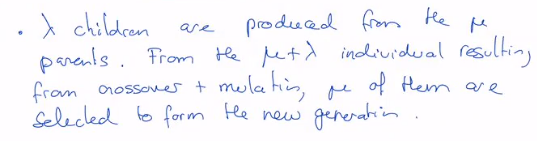 . λ children are produced from the μ
parents. From the μ+λ individual resulting
from crossover + mutation, μ of them are
selected to form the new generation.